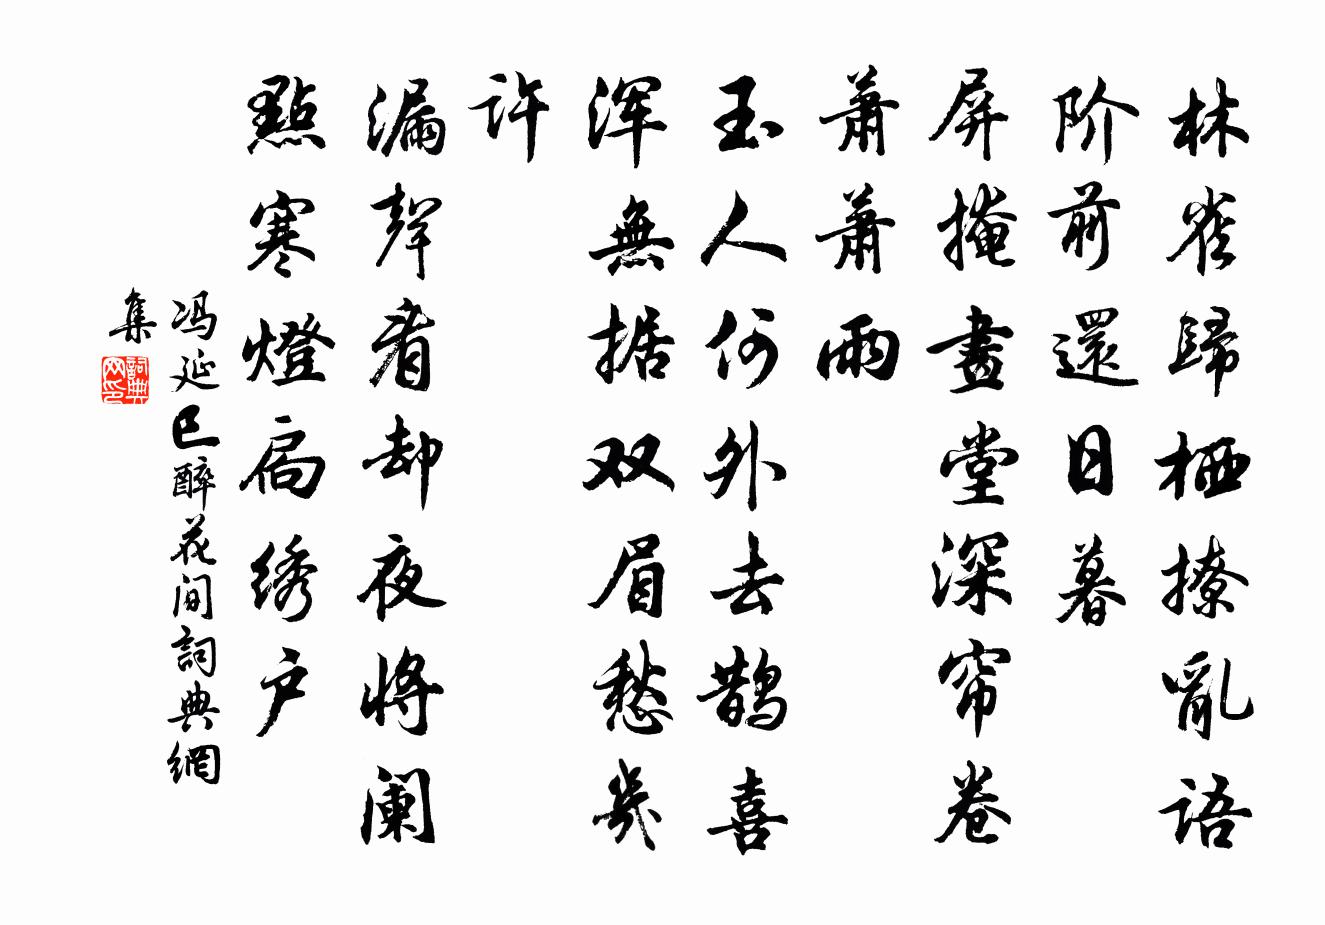 林雀歸栖撩亂语
阶前還日暮
屏掩畫堂深帘卷
萧萧雨
玉人何处去鹊喜
浑無据双眉愁幾
许
漏聲看却夜将阑
點寒燈扃绣户
冯延巳醉花间詞典網
集
詞典
网印